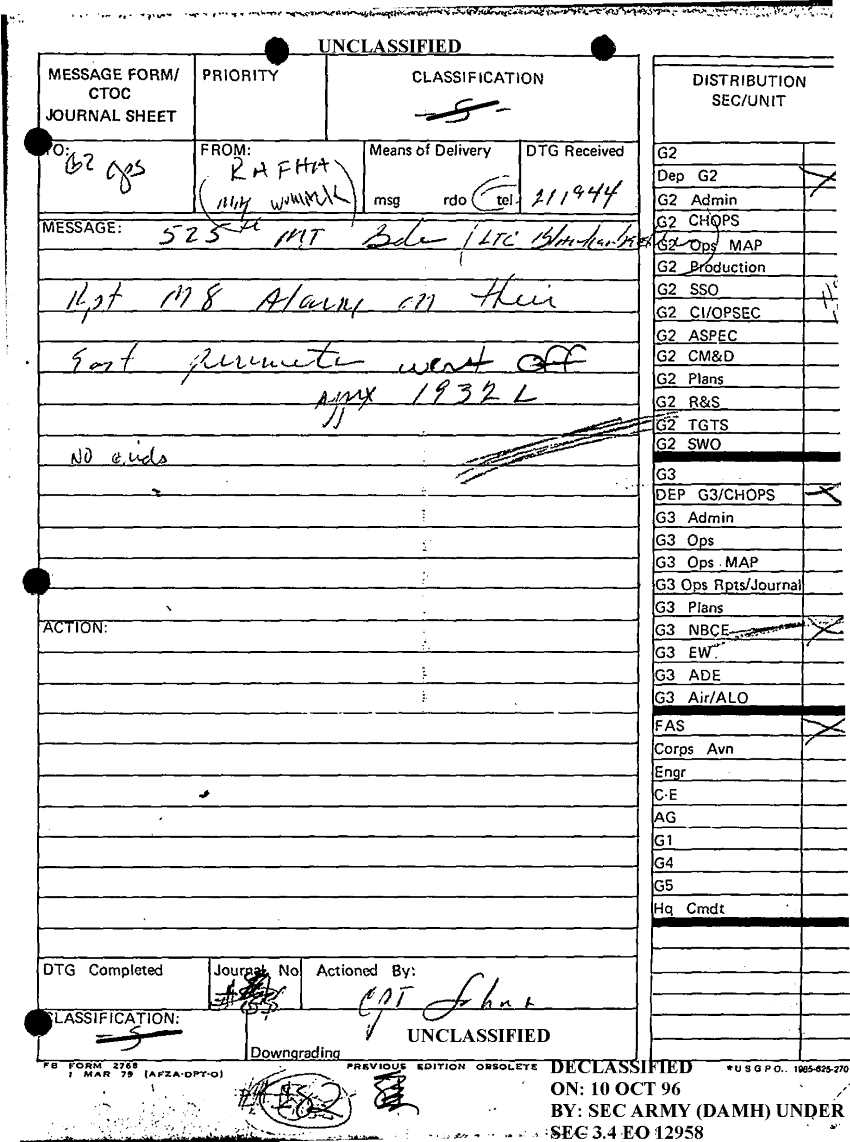 UNCLASSIFIED
MESSAGE FORM/
CTOC
JOURNAL SHEET
PRIORITY
CLASSIFICATION
S
DISTRIBUTION
SEC/UNIT
TO: G2 Ops
FROM: RAFHA
Means of Delivery
msg rdo tel
DTG Received
211944
MESSAGE: 525th MI Bde (LTC
Rpt M8 Alarm on their
East perimeter went off
Appx 1932 L
NO
ACTION:
G2
Dep G2 X
G2 Admin
G2 CHOPS
G2 Ops MAP
G2 Production
G2 SSO
G2 CI/OPSEC
G2 ASPEC
G2 CM&D
G2 Plans
G2 R&S
G2 TGTS
G2 SWO
G3
DEP G3/CHOPS X
G3 Admin
G3 Ops
G3 Ops MAP
G3 Ops Rpts/Journal
G3 Plans
G3 NBCE X
G3 EW
G3 ADE
G3 Air/ALO
FAS X
Corps Avn
Engr
C-E
AG
G1
G4
G5
Hq Cmdt
DTG Completed
Journal No
Actioned By:
CPT
CLASSIFICATION:
S
Downgrading
UNCLASSIFIED
FB FORM 2768
1 MAR 79 (AFZA-DPT-O)
PREVIOUS EDITION OBSOLETE
*USGPO.. 1985-625-270
82
DECLASSIFIED
ON: 10 OCT 96
BY: SEC ARMY (DAMH) UNDER
SEC 3.4 EO 12958